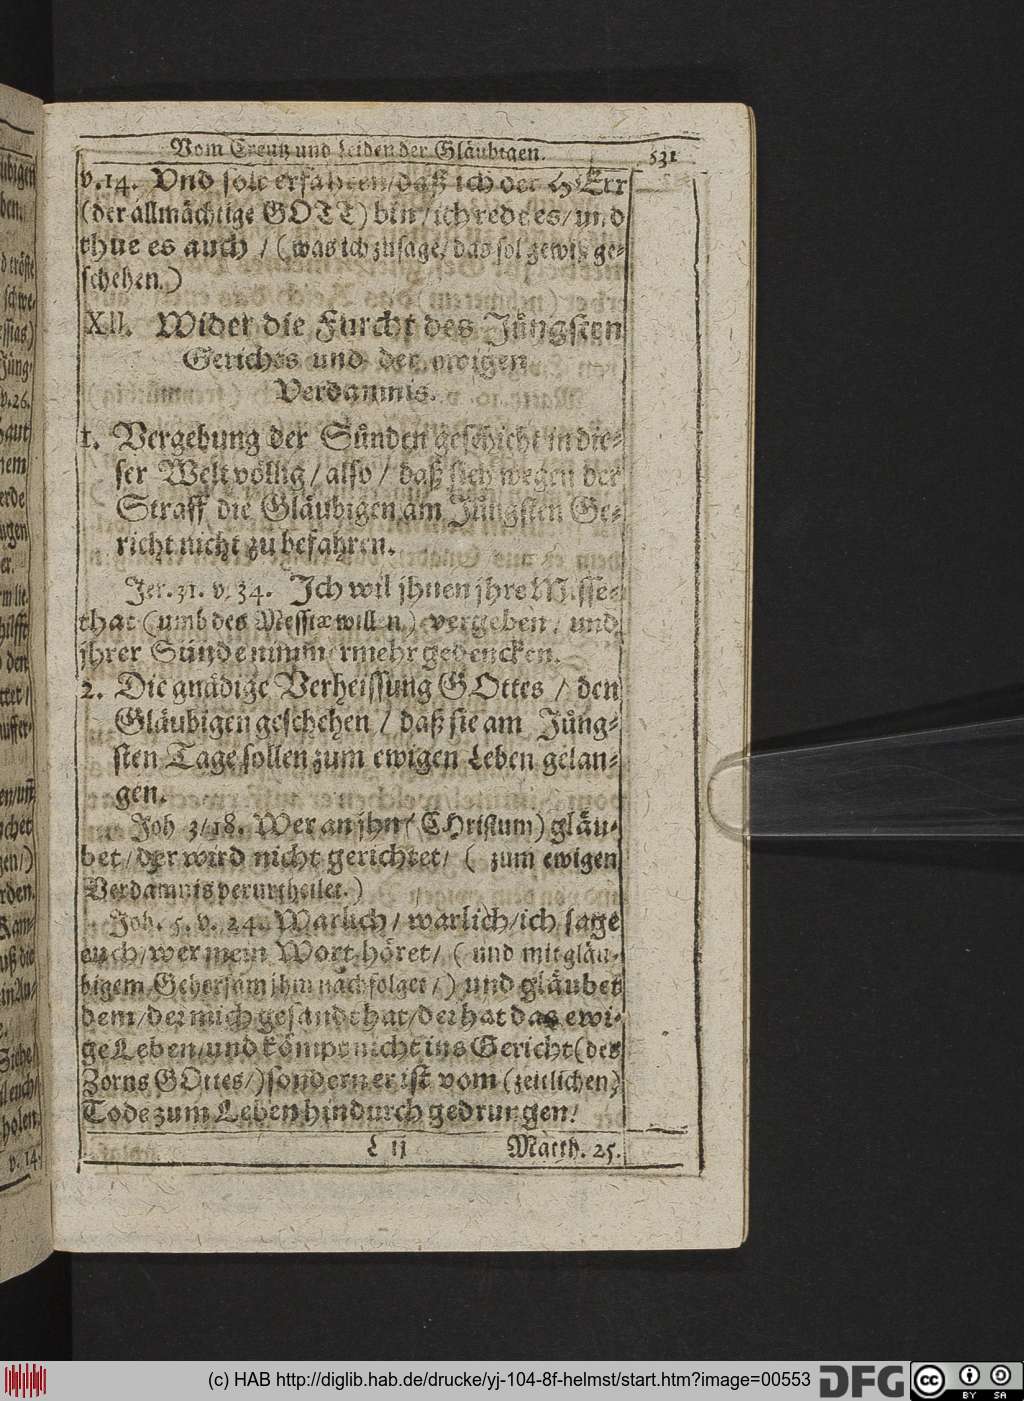 Vom Creutz und Leiden der Gläubigen. 531
v. 14. Vnd solt erfahren/daß ich der HErr
(der allmächtige GOTT) bin/ich rede es/und
thue es auch / (was ich zusage/das sol gewiß ge-
schehen.)
XII. Wider die Furcht des Jüngsten
Gerichts und der ewigen
Verdamnis.
1. Vergebung der Sünden geschicht in die-
ser Welt völlig/also/ daß sich wegen der
Straff die Gläubigen am Jüngsten Ge-
richt nicht zu befahren.
Jer. 31. v. 34. Ich wil jhnen jhre Misse-
that (umb des Messiæ willen) vergeben/ und
jhrer Sünde nimmermehr gedencken.
2. Die gnädige Verheissung GOttes / den
Gläubigen geschehen / daß sie am Jüng-
sten Tage sollen zum ewigen Leben gelan-
gen.
Joh 3/18. Wer an jhn (CHristum) gläu-
bet/der wird nicht gerichtet/ ( zum ewigen
Verdamnis verurtheilet.)
Joh. 5. v. 24. Warlich/ warlich/ich sage
euch/wer mein Wort höret/ ( und mit gläu-
bigem Gehorsam ihm nachfolget/) und gläubet
dem/der mich gesandt hat/der hat das ewi-
ge Leben/und kömpt nicht ins Gericht (des
Zorns GOttes/) sondern er ist vom (zeitlichen)
Tode zum Leben hindurch gedrungen/
L ij Matth. 25.
v. 26.
v. 14.
(c) HAB http://diglib.hab.de/drucke/yj-104-8f-helmst/start.htm?image=00553 DFG cc BY SA